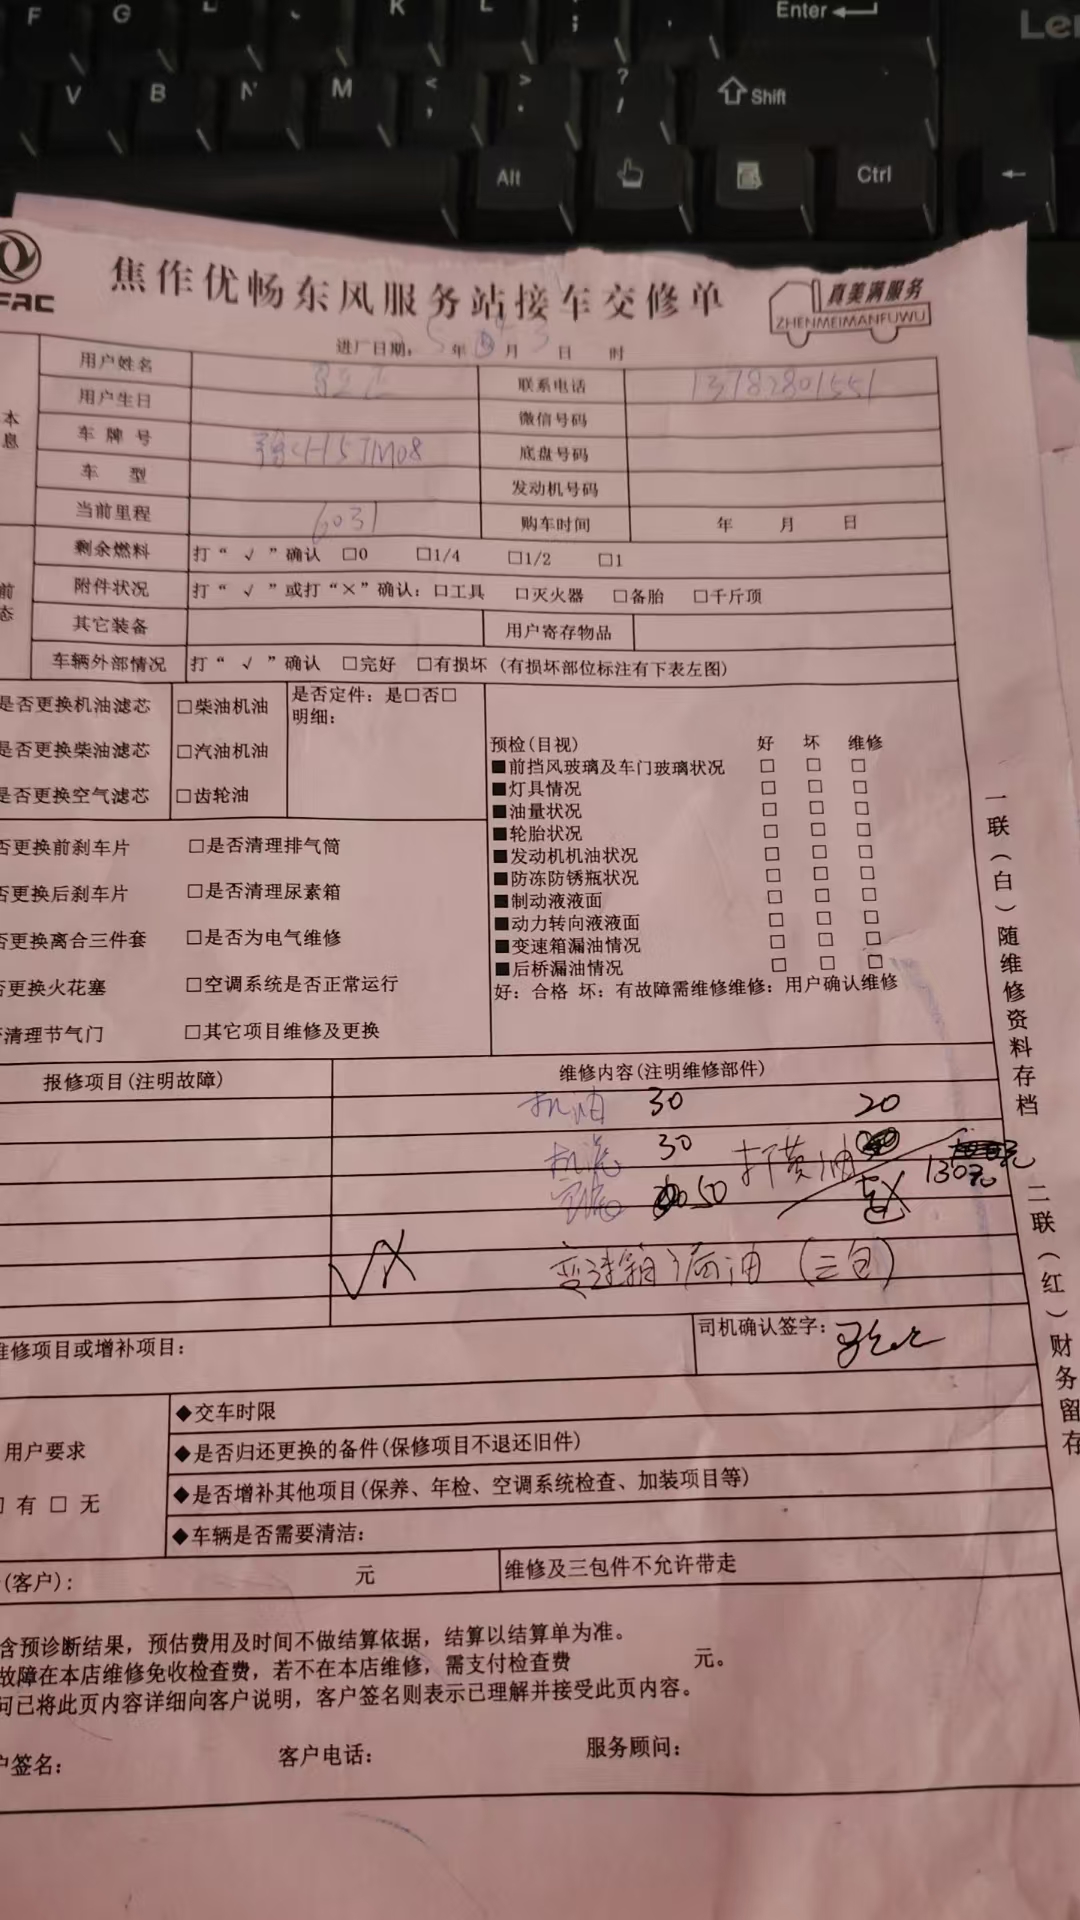 F G K L ; Enter
Lenovo
V B N M < , > . ? / Shift
Alt Ctrl
FAC
焦作优畅东风服务站接车交修单
真美满服务
ZHENMEIMANFUWU
进厂日期: 5 年 月 3 日 时
本
息
用户姓名 联系电话 13782801551
用户生日 微信号码
车牌号 豫CH15JM08 底盘号码
车 型 发动机号码
当前里程 6031 购车时间 年 月 日
前
态
剩余燃料 打“√”确认 □0 □1/4 □1/2 □1
附件状况 打“√”或打“×”确认: □工具 □灭火器 □备胎 □千斤顶
其它装备 用户寄存物品
车辆外部情况 打“√”确认 □完好 □有损坏 (有损坏部位标注有下表左图)
是否更换机油滤芯 □柴油机油 是否定件: 是□否□
明细:
是否更换柴油滤芯 □汽油机油
是否更换空气滤芯 □齿轮油
预检(目视) 好 坏 维修
■前挡风玻璃及车门玻璃状况 □ □ □
■灯具情况 □ □ □
■油量状况 □ □ □
■轮胎状况 □ □ □
■发动机机油状况 □ □ □
■防冻防锈瓶状况 □ □ □
■制动液液面 □ □ □
■动力转向液液面 □ □ □
■变速箱漏油情况 □ □ □
■后桥漏油情况 □ □ □
好: 合格 坏: 有故障需维修维修: 用户确认维修
否更换前刹车片 □是否清理排气筒
否更换后刹车片 □是否清理尿素箱
否更换离合三件套 □是否为电气维修
否更换火花塞 □空调系统是否正常运行
清理节气门 □其它项目维修及更换
报修项目(注明故障) 维修内容(注明维修部件)
机油 30 20
机滤 30 打黄油
50 130元
变速箱漏油 (三包)
维修项目或增补项目: 司机确认签字:
用户要求
□ 有 □ 无
◆交车时限
◆是否归还更换的备件(保修项目不退还旧件)
◆是否增补其他项目(保养、年检、空调系统检查、加装项目等)
◆车辆是否需要清洁:
(客户): 元 维修及三包件不允许带走
含预诊断结果，预估费用及时间不做结算依据，结算以结算单为准。
故障在本店维修免收检查费，若不在本店维修，需支付检查费 元。
问已将此页内容详细向客户说明，客户签名则表示已理解并接受此页内容。
户签名: 客户电话: 服务顾问:
一联(白)随维修资料存档 二联(红)财务留存